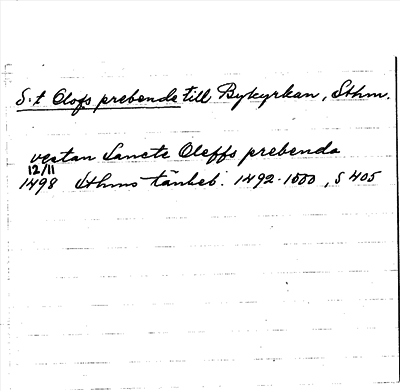 S:t Olofs prebende till Bykyrkan, Sthm.
vestan Sancte Oleffs prebenda
12/11
1498 Sthms tänkeb. 1492-1500, s 405